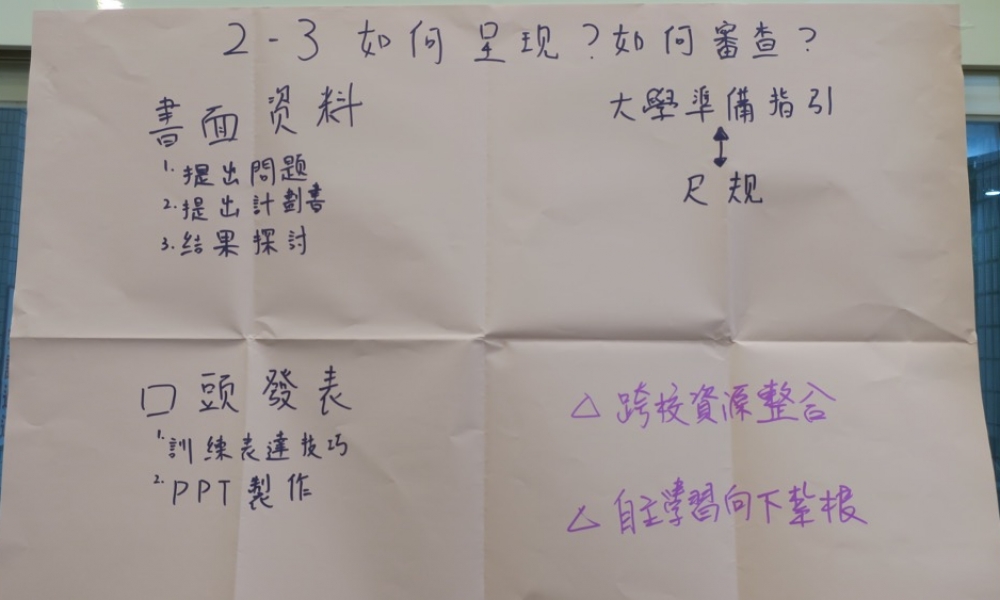 2-3 如何呈现?如何審查?
書面資料
1. 提出問題
2. 提出計劃書
3. 結果探討
大學準備指引
↕
尺規
口頭發表
1. 訓練表達技巧
2. PPT製作
△ 跨校資源整合
△ 自主學習向下紮根